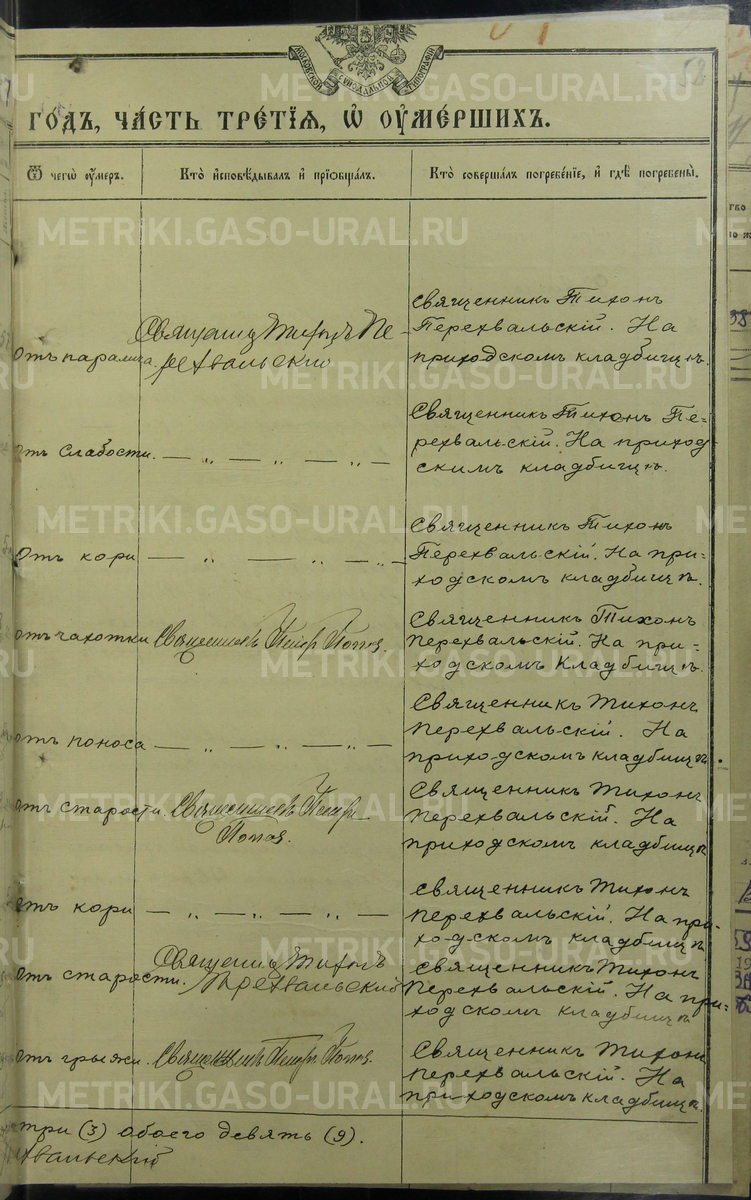 МОСКОВСКОЙ СѴНОДАЛЬНОЙ ТИПОГРАФІИ
52
ГОДЪ, ЧАСТЬ ТРЕТІЯ, Ѽ ОУМЕРШИХЪ.
Ѿ чегѡ оумеръ.
Кто исповѣдывалъ и пріобщалъ.
Кто совершалъ погребеніе, и гдѣ погребены.
отъ паралича.
Священник Тихонъ Пе-
рехвальский
Священникъ Тихонъ
Перехвальскій. На
приходскомъ кладбищѣ.
отъ слабости.
— „ — „ — „ —
Священникъ Тихонъ Пе=
рехвальскій. На приход
скимъ кладбищѣ.
отъ кори
— „ — „ — „ —
Священникъ Тихонъ
Перехвальскій. На при=
ходскомъ кладбищѣ.
отъ чахотки
Священникъ Петръ Попов.
Священникъ Тихонъ
Перехвальскій. На при=
ходскомъ кладбищѣ.
отъ поноса
— „ — „ — „ —
Священникъ Тихонъ
Перехвальскій. На
приходскомъ кладбищѣ.
отъ старости.
Священникъ Петръ
Попов.
Священникъ Тихонъ
Перехвальскій. На
приходскомъ кладбищѣ
отъ кори
— „ — „ — „ —
Священникъ Тихонъ
Перехвальскій. На при-
ходскомъ кладбищѣ
отъ старости.
Священник Тихонъ
Перехвальский
Священникъ Тихонъ
Перехвальскій. На при=
ходскомъ кладбищѣ
отъ грыжи.
Священникъ Петръ Попов.
Священникъ Тихонъ
Перехвальскій. На
приходскомъ кладбищѣ.
три (3) обоего девять (9).
хвальский
METRIKI.GASO-URAL.RU